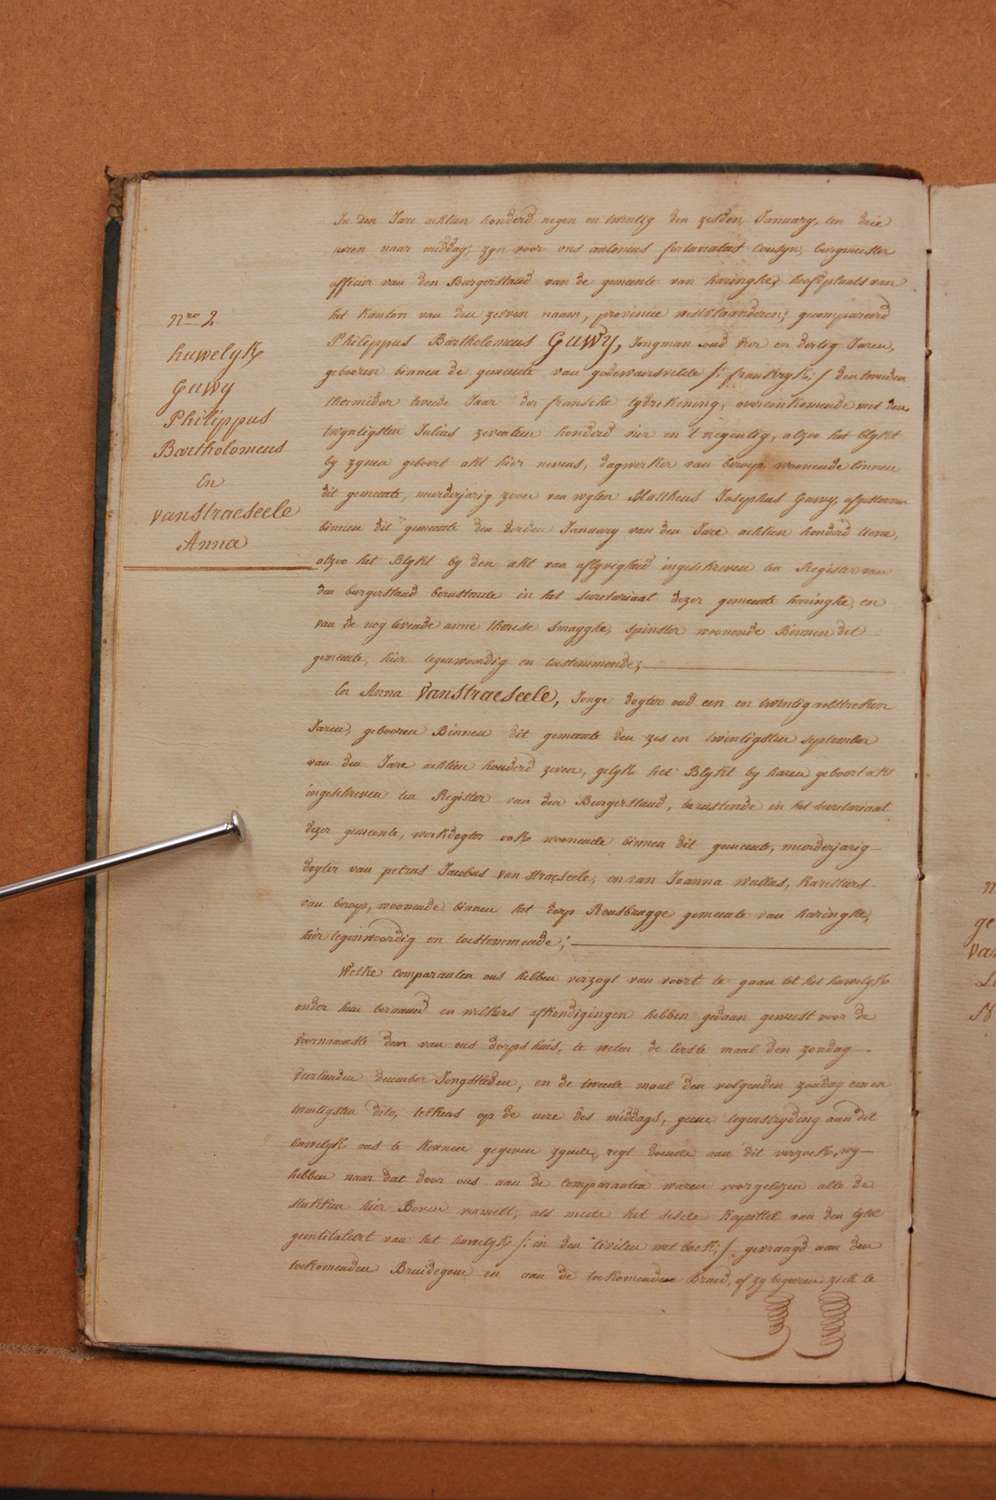 Nro 2
huwelyk
Guwy
Philippus
Bartholomeus
En
vanstraeseele
Anna
In den Jare achtien honderd negen en twintig den zesden January, ten drie
uren naar middag, zyn voor ons antonius fortunatus Cousyn, burgmeester
officier van den Burgerstand van de gemeente van haringhe, hoofdplaats van
het kanton van den zelven naam, provincie westvlaanderen; gecompareerd
Philippus Bartholomeus Guwy, Jongman oud vier en dertig Jaren,
gebooren binnen de gemeente van godewaersvelde /: frankryk :/ den tweeden
thermidor tweede Jaar der fransche tydrekening, overeenkomende met den
twyntigsten Julius zeventien honderd vier en 't negentig, alzoo het blykt
by zynen geboort akt hier nevens, dagwerker van beroep woonende binnen
dit gemeente, meerderjarig zoon van wylen Mattheus Josephus Guwy, afgestorven
binnen dit gemeente den derden January van den Jare achtien honderd twee,
alzoo het Blykt by den akt van aflyvigheid ingeschreven ten Register van
den burgerstand berustende in het secretariaat dezer gemeente haringhe, en
van de nog levende anne therese Smagghe, spinster woonende Binnen dit
gemeente, hier tegenwoordig en toestemmende;
En Anna Vanstraeseele, Jonge dogter oud een en twintig voltrokken
Jaren, gebooren Binnen dit gemeente den zes en twintigsten september
van den Jare achtien honderd zeven, gelyk het Blykt by haren geboort akt
ingeschreven ten Register van den Burgerstand, berustende in het secretariaat
dezer gemeente, werkdogter ook woonende binnen dit gemeente, meerderjarig
dogter van petrus Jacobus van straeseele, en van Joanna Wallas,
van beroep, woonende binnen het dorp Rousbrugge gemeente van haringhe,
hier tegenwoordig en toestemmende;
Welke comparanten ons hebben verzogt van voort te gaan tot het huwelyk
onder hun beraamd en welkers afkondigingen hebben gedaan geweest voor de
voornaamste deur van ons dorpshuis, te weten de eerste maal den zondag
veertienden december Jongstleden, en de tweede maal den volgenden zondag een en
twintigsten dito, telkens op de uere des middags, geene tegenstryding aan dit
huwelyk ons te kennen gegeven zynde, regt doende aan dit verzoek, wy
hebben naar dat door ons aan de comparanten waren voorgelezen alle de
stukken hier Boven vermeld, als mede het sesde kapittel van den tytel
geintituleert van het huwelyk /: in den civilen wet boek :/ gevraagd aan den
toekomenden Bruidegom en aan de toekomende Bruid, of zy begeeren zich te